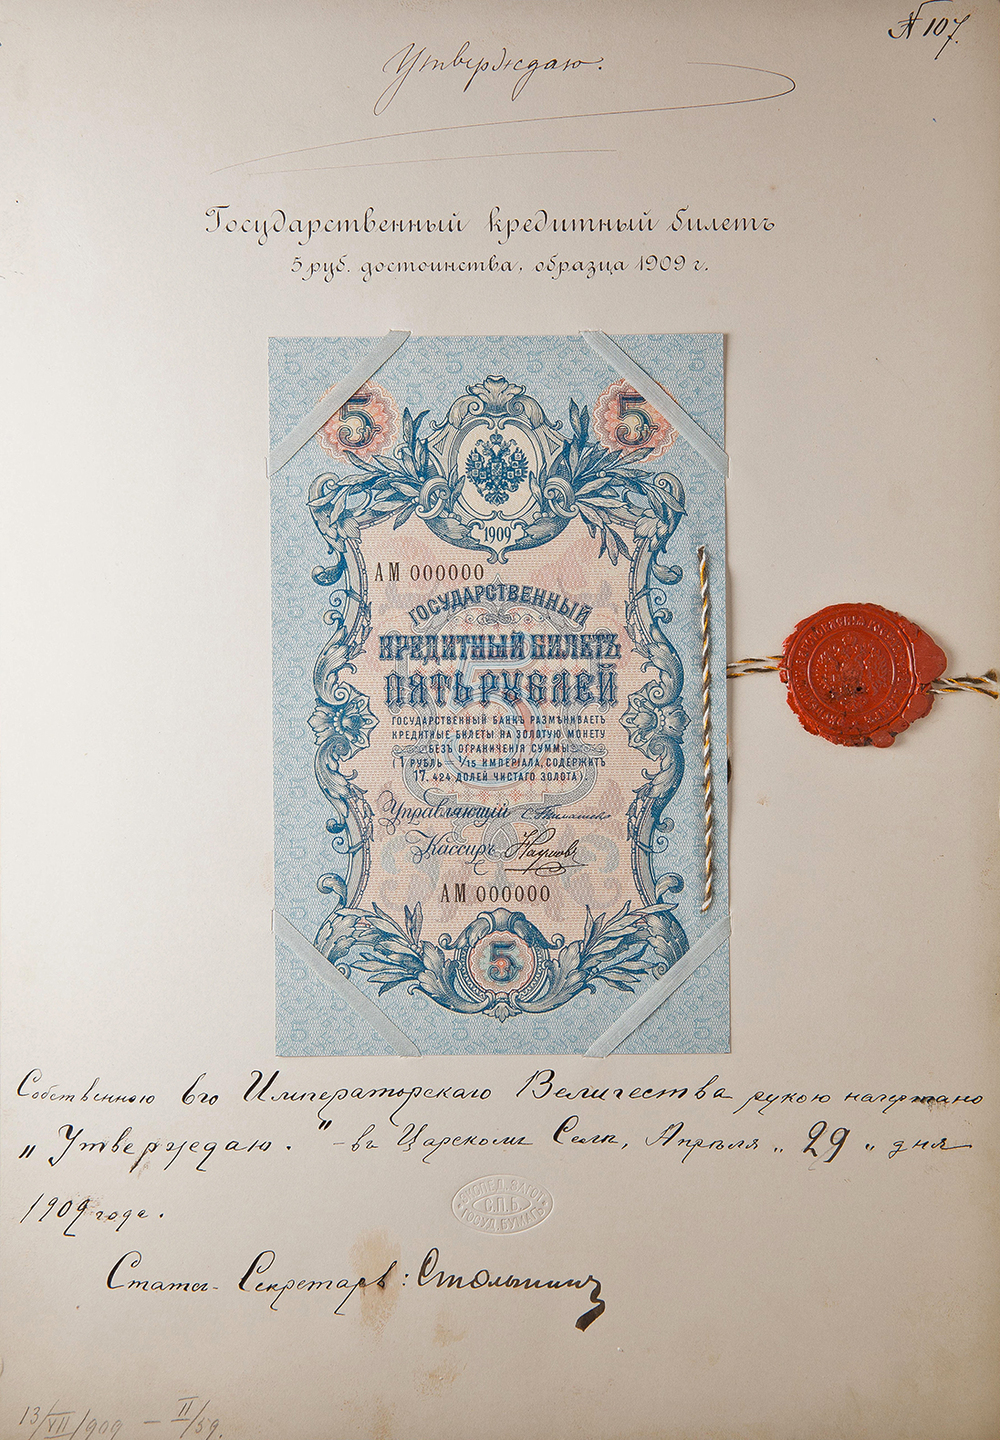 № 107.
Утверждаю.
Государственный кредитный билетъ
5 руб. достоинства, образца 1909 г.
5 5
1909
АМ 000000
ГОСУДАРСТВЕННЫЙ
КРЕДИТНЫЙ БИЛЕТЪ
ПЯТЬ РУБЛЕЙ
ГОСУДАРСТВЕННЫЙ БАНКЪ РАЗМѢНИВАЕТЪ
КРЕДИТНЫЕ БИЛЕТЫ НА ЗОЛОТУЮ МОНЕТУ
БЕЗЪ ОГРАНИЧЕНІЯ СУММЫ
(1 РУБЛЬ = 1/15 ИМПЕРІАЛА, СОДЕРЖИТЪ
17,424 ДОЛЕЙ ЧИСТАГО ЗОЛОТА).
Управляющій
Кассиръ Наумовъ
АМ 000000
5
Собственною Его Императорскаго Величества рукою начертано
„Утверждаю." – въ Царскомъ Селѣ, Апрѣля „29" дня
1909 года.
ЭКСПЕД. ЗАГОТ.
С.П.Б.
ГОСУД. БУМАГЪ
Статсъ-Секретарь: Столыпинъ
13/VII/909 – II/59.